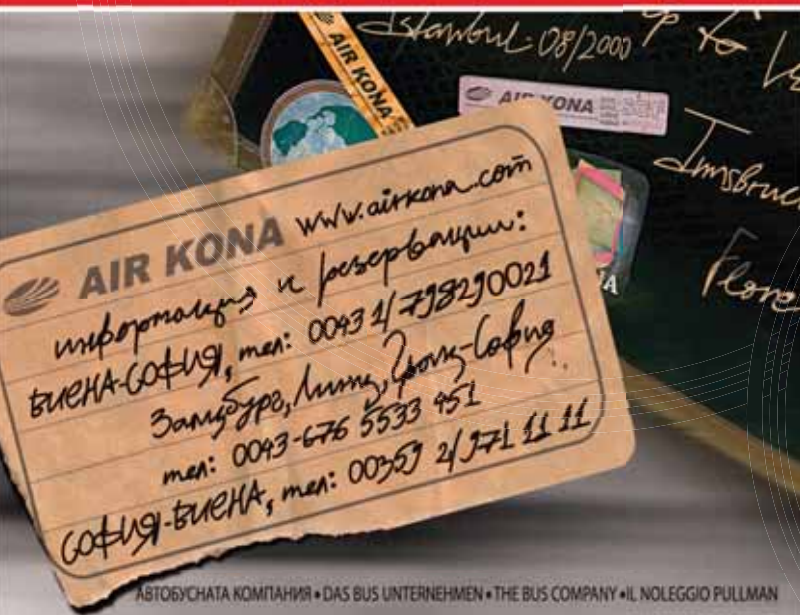 Istanbul 08/2000
AIR KONA
AIR KONA
Innsbruc
Flore
AIR KONA www.airkona.com
информация и резервации:
ВИЕНА-СОФИЯ, тел: 0043 1/798290021
Залцбург, Линц, Грац-София
тел: 0043-676 5533 451
СОФИЯ-ВИЕНА, тел: 00359 2/971 11 11
АВТОБУСНАТА КОМПАНИЯ • DAS BUS UNTERNEHMEN • THE BUS COMPANY • IL NOLEGGIO PULLMAN